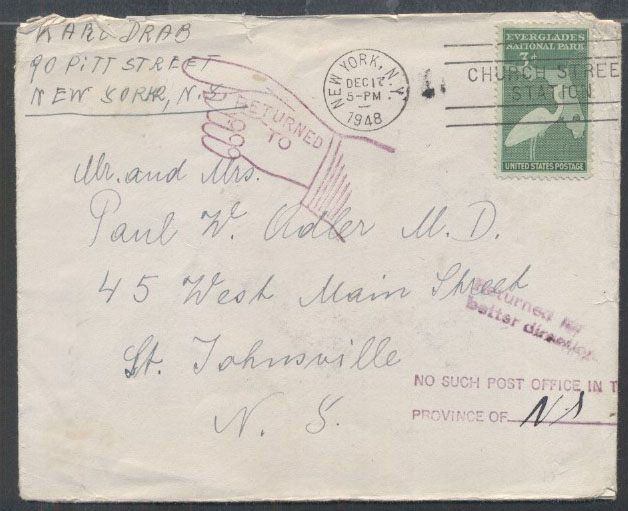 KARL DRAB
90 PITT STREET
NEW YORK, N.Y.
RETURNED
TO
NEW YORK, N.Y.
DEC 17
5-PM
1948
CHURCH STREE
STATION
EVERGLADES
NATIONAL PARK
3¢
UNITED STATES POSTAGE
Mr. and Mrs.
Paul W. Adler M. D.
45 West Main Street
St. Johnsville
N. Y.
Returned for
better direction
NO SUCH POST OFFICE IN T
PROVINCE OF NS